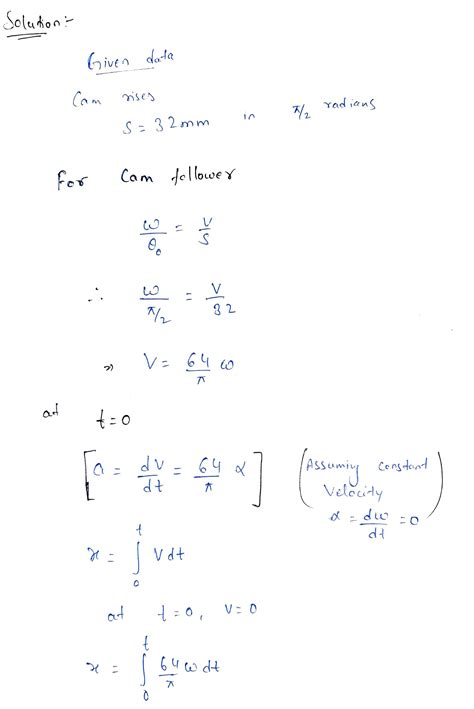 Solution:-
Given data
Cam rises
S = 32mm in π/2 radians
For Cam follower
ω/θ₀ = V/S
∴ ω/(π/2) = V/32
⇒ V = 64/π ω
at t=0
[a = dV/dt = 64/π α] (Assuming constant
Velocity
α = dω/dt = 0)
x = ∫₀ᵗ V dt
at t=0, V=0
x = ∫₀ᵗ 64/π ω dt